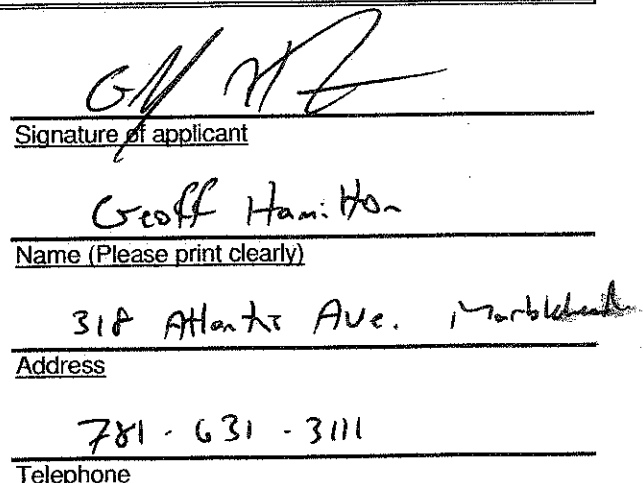 Signature of applicant
Geoff Hamilton
Name (Please print clearly)
318 Atlantic Ave. Marblehead
Address
781-631-3111
Telephone